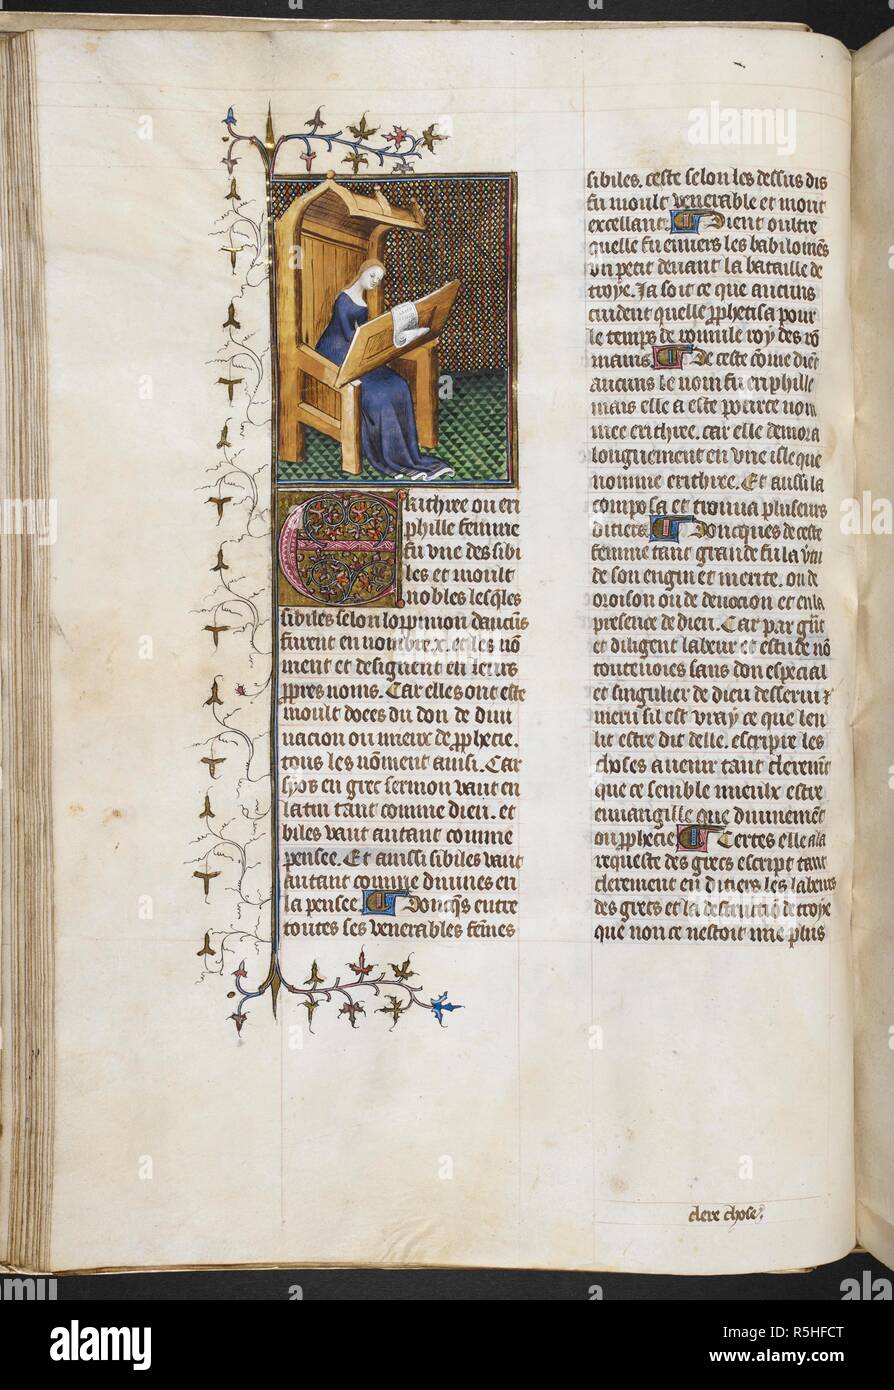 Erithree ou eri
phille femme
fu vne des sibi
les et moult
nobles lesq̃les
sibiles selon lopp̃inion dancũs
furent en nombre .x. et les nõ
ment et designent en leurs
ꝓpres noms. Car elles ont este
moult doees du don de diui
nacion ou mieux de ꝓphecie.
tous les nõment ainsi. Car
syos en grec sermon vault en
latin tant comme dieu. et
biles vaut autant comme
pensee. Et aussi sibiles vaut
autant comme diuines en
la pensee. Doncq̃s entre
toutes ses venerables fẽmes
sibiles. ceste selon les dessus dis
fu moult venerable et mont
excellant. Dient oultre
quelle fu enuers les babiloniẽs
vn petit deuant la bataille de
troye. Ja soit ce que aucuns
cuident quelle ꝓphetisa pour
le temps de romule roy des rõ
mains. De ceste cõme diẽt
aucuns le nom fu eriphille
mais elle a este pource nom
mee erithree. car elle demora
longuement en vne isle que
nomme erithree. Et aussi la
composa et trouua pluseurs
ditiers. Doncques de ceste
femme tant grande fu la
de son engin et merite. ou de
oroison ou de deuocion et en la
presence de dieu. Car par gñt
et diligent labeur et estude nõ
toutenoies sans don especial
et singulier de dieu desserui
meru sil est vray ce que len
lit estre dit delle. escripre les
choses a uenir tant cleremẽt
que ce semble mieulx estre
euuangille que diuinemẽt
ou ꝓphecie Certes elle a la
requeste des grecs escript tant
clerement en ditiers les labeurs
des grecs et la destructiõ de troye
que non ce nestoit mie plus
clere chose
alamy
Image ID: R5HFCT
www.alamy.com